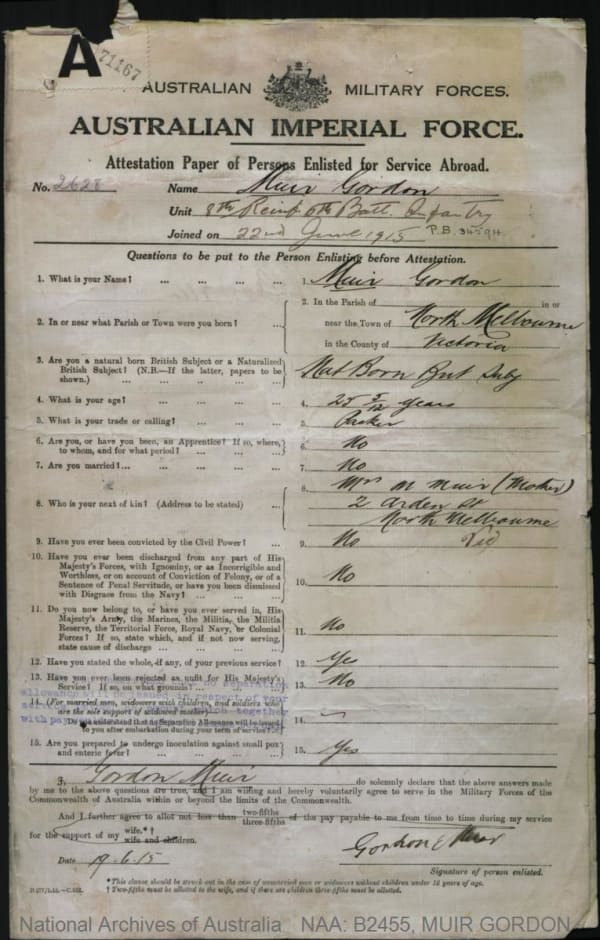 A
71167
AUSTRALIAN MILITARY FORCES.
AUSTRALIAN IMPERIAL FORCE.
Attestation Paper of Persons Enlisted for Service Abroad.
No. 2628 Name Muir Gordon
Unit 8th Reinf 6th Batt. Infantry
Joined on 22nd June 1915 P.B. 34594
Questions to be put to the Person Enlisting before Attestation.
1. What is your Name? ... ... ... ... 1. Muir Gordon
2. In or near what Parish or Town were you born? ... 2. In the Parish of in or
near the Town of North Melbourne
in the County of Victoria
3. Are you a natural born British Subject or a Naturalized
British Subject? (N.B.—If the latter, papers to be
shown.) ... ... ... ... ... Nat Born Brit Subj
4. What is your age? ... ... ... ... 4. 25 3/12 years
5. What is your trade or calling? ... ... ... 5. Packer
6. Are you, or have you been, an Apprentice? If so, where,
to whom, and for what period? ... ... ... 6. No
7. Are you married?... ... ... ... ... 7. No
8. Who is your next of kin? (Address to be stated) ... 8. Mrs M Muir (Mother)
2 Arden St
North Melbourne
Vic
9. Have you ever been convicted by the Civil Power? ... 9. No
10. Have you ever been discharged from any part of His
Majesty's Forces, with Ignominy, or as Incorrigible and
Worthless, or on account of Conviction of Felony, or of a
Sentence of Penal Servitude, or have you been dismissed
with Disgrace from the Navy? ... ... ... 10. No
11. Do you now belong to, or have you ever served in, His
Majesty's Army, the Marines, the Militia, the Militia
Reserve, the Territorial Force, Royal Navy, or Colonial
Forces? If so, state which, and if not now serving,
state cause of discharge ... ... ... ... 11. No
12. Have you stated the whole, if any, of your previous service? 12. Yes
13. Have you ever been rejected as unfit for His Majesty's
Service? If so, on what grounds? ... ... ... 13. No
no separation
allowance will be issued in respect of your
together
with pay
14. (For married men, widowers with children, and soldiers who
are the sole support of widowed mother)—
Do you understand that no Separation Allowance will be issued
to you after embarkation during your term of service? 14. —
15. Are you prepared to undergo inoculation against small pox
and enteric fever? ... ... ... ... 15. Yes
I, Gordon Muir do solemnly declare that the above answers made
by me to the above questions are true, and I am willing and hereby voluntarily agree to serve in the Military Forces of the
Commonwealth of Australia within or beyond the limits of the Commonwealth.
And I further agree to allot not less than two-fifths three-fifths of the pay payable to me from time to time during my service
for the support of my wife.*† wife and children.
Date 19.6.15
Gordon Muir
Signature of person enlisted.
* This clause should be struck out in the case of unmarried men or widowers without children under 18 years of age.
† Two-fifths must be allotted to the wife, and if there are children three-fifths must be allotted.
National Archives of Australia NAA: B2455, MUIR GORDON